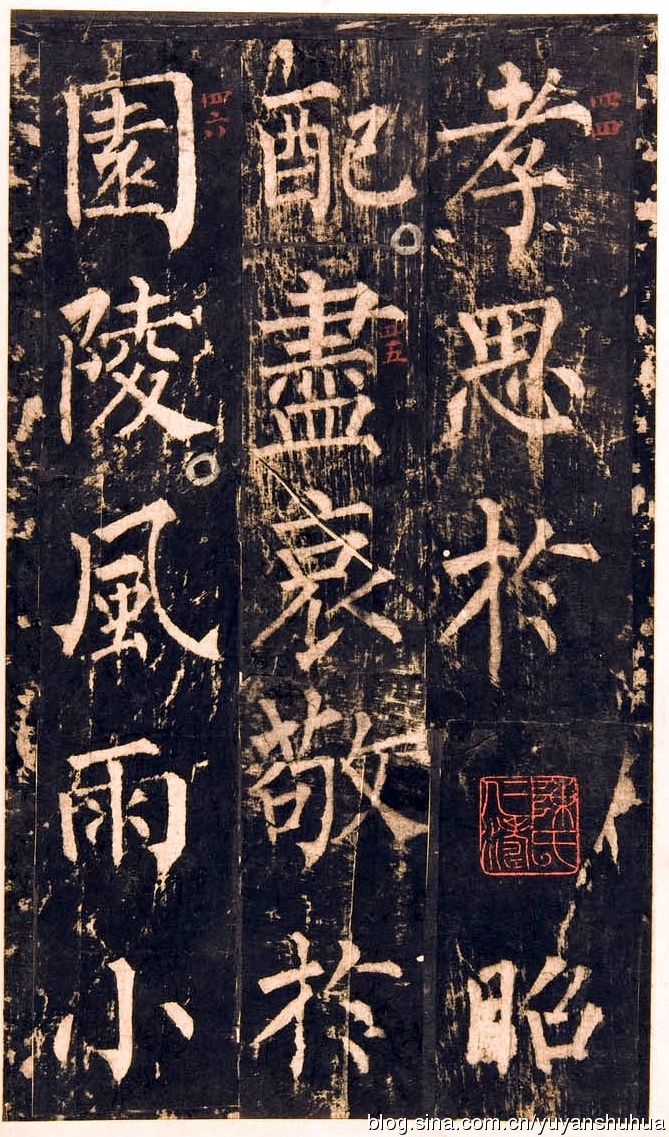 孝思於昭
配盡哀敬於
園陵風雨小
四四
四五
四六
blog.sina.com.cn/yuyanshuhua